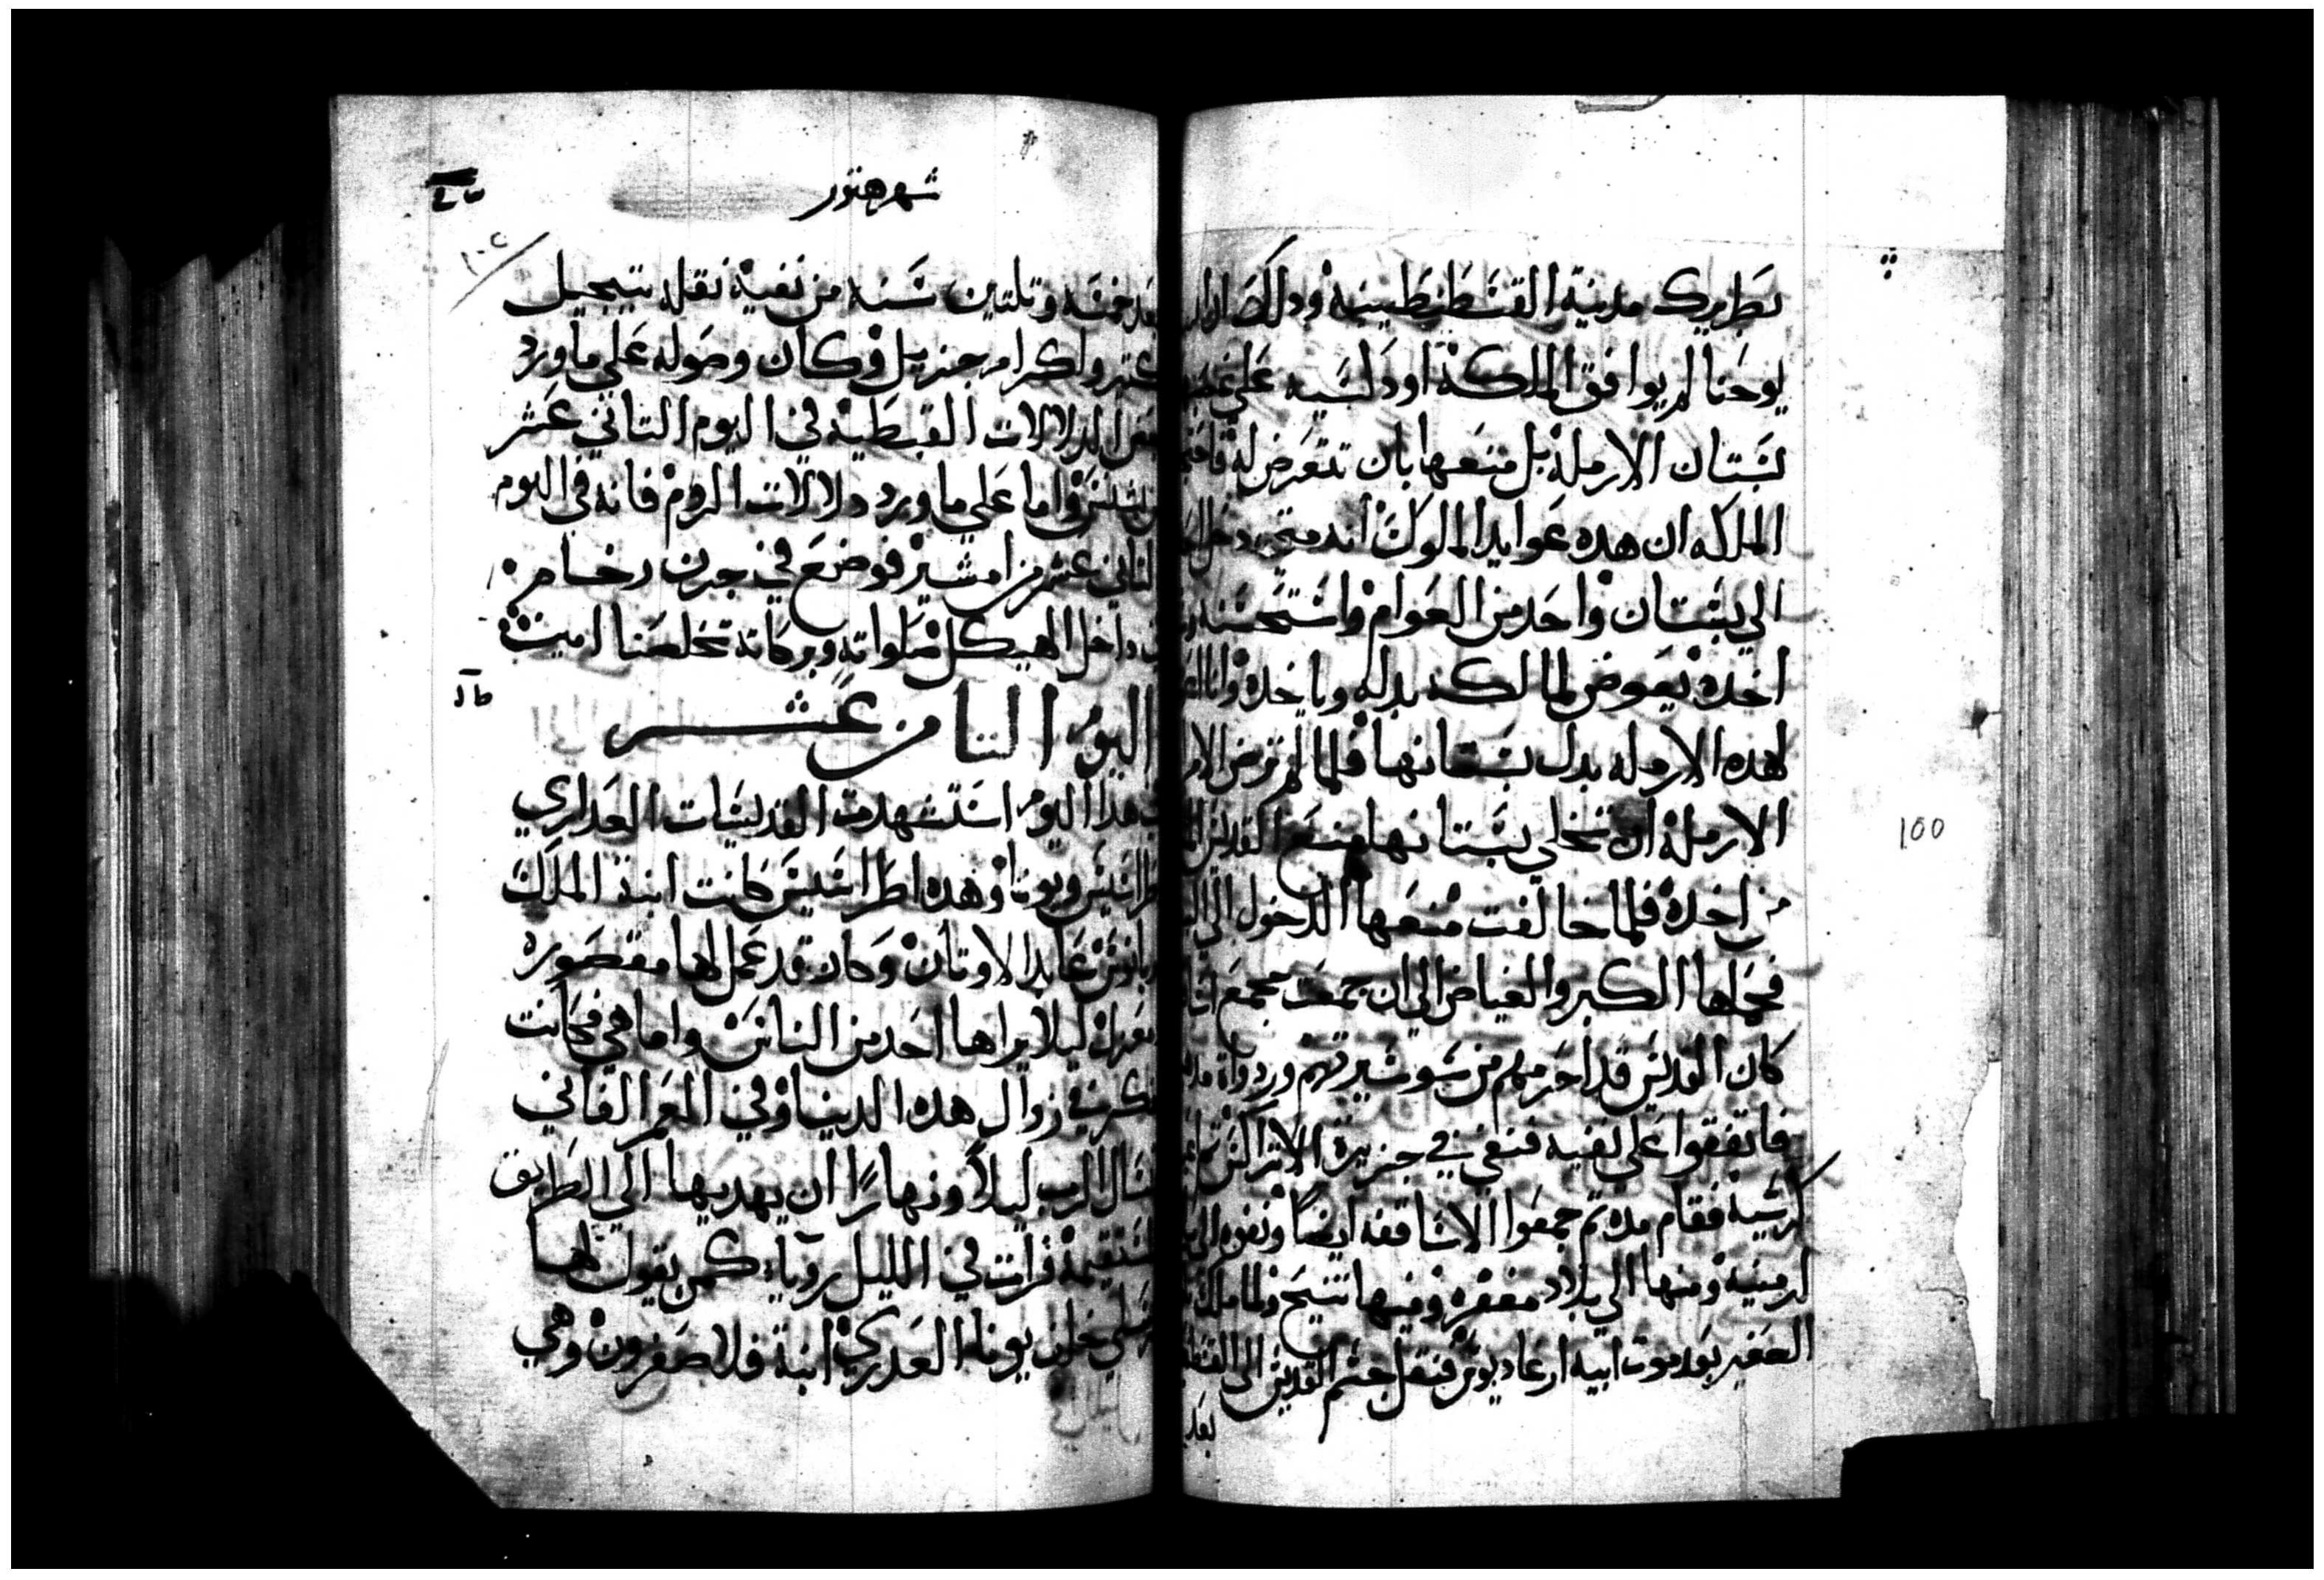 بطريرك مدينة القسطنطينيه ودلك ان
يوحنا لم يوافق الملكة اودكسيه علي
بستان الارملة بل منعها بان تتعرض له
الملكه ان هده عوايد الملوك انه متي دخل
الي بستان واحد من العوام واستحسنه
اخده يعوض لمالكه بدله وياخده وانا
لهده الارمله بدل بستانها فلما لم ترض
الارملة ان تخلي بستانها منع القديس
من اخده فلما خالفت منعها الدخول الي
فحملها الكبر والغياض الي ان جمعت مجمع
كان القديس قد احرمهم من سو سيرتهم وردواة
فاتفقوا علي نفيه فنفي في جزيرة الاتراكس
كرسية فقام مده تم جمعوا الاساقفه ايضا ونفوه الي
ارمنية ومنها الي بلاد مغفره وفيها تنيح ولما ملك
الصغير بعد موت ابيه ارغاديوس فنقل جسم القديس الي
بعد
شهر هتور
١٠٢
بعد خمسه وتلتين سنه من نفية نقله بتبجيل
كتير واكرام جزيل وكان وصوله علي ماورد
الدلالات القبطية في اليوم التاني عشر
واما علي ماورد دلالات الروم فانه في اليوم
التاني عشر من امشير فوضع في جرن رخام
داخل الهيكل صلواته وبركاته تخلصنا امين
اليوم التامن عشر
هدا اليوم استشهدت القديسات العداري
ويونا وهده اطراسيس كانت ابنة الملك
عابد الاوتان وكان قد عمل لها مقصوره
ليلا يراها احد من الناس واما هي فكانت
في زوال هده الدنيا وفي العمر الفاني
تسال الرب ليلاً ونهارًا ان يهديها الي الطريق
المستقيمة فرات في الليل رويا كمن يقول لها
خلف يونا العدري ابنة فلاصفرون وهي
100